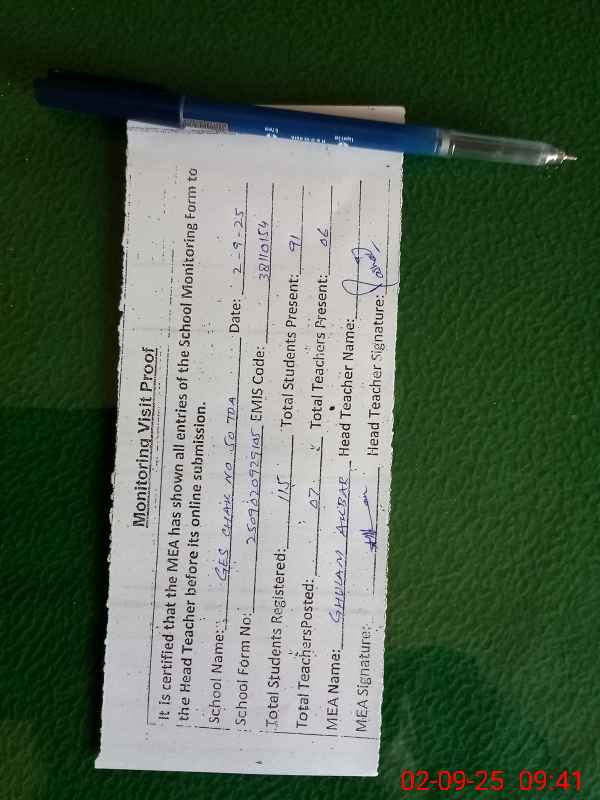 Monitoring Visit Proof
It is certified that the MEA has shown all entries of the School Monitoring Form to
the Head Teacher before its online submission.
School Name: GES CHAK NO 50 TDA Date: 2-9-25
School Form No: 2509020929105 EMIS Code: 38110154
Total Students Registered: 115 Total Students Present: 91
Total TeachersPosted: 07 Total Teachers Present: 06
MEA Name: GHULAM AKBAR Head Teacher Name:
MEA Signature: Head Teacher Signature:
02-09-25 09:41